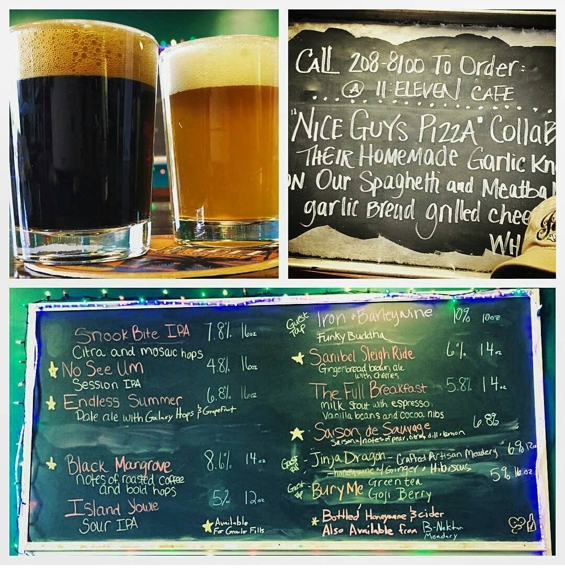 CALL 208-8100 To Order:
@ 11 ELEVEN CAFE
"NICE GUYS PIZZA" Collab
THEIR Homemade Garlic Kn
ON Our Spaghetti and Meatba
garlic Bread grilled chee
WH
Snook Bite IPA 7.8% 16oz
Citra and mosaic hops
No See Um 4.8% 16oz
Session IPA
Endless Summer 6.8% 16oz
Pale ale with Galaxy Hops & Grapefruit
Black Mangrove 8.6% 14oz
notes of roasted coffee
and bold hops
Island Yowie 5% 12oz
Sour IPA
Available
For Growler Fills
Guest Tap Iron + Barleywine 10% 10oz
Funky Buddha
Sanibel Sleigh Ride 6% 14oz
Gingerbread brown ale
with cherries
The Full Breakfast 5.8% 14oz
milk stout with espresso
Vanilla beans and cocoa nibs
Saison de Sauvage 6.8%
Saison notes of pear, dill + lemon
Jinja Dragon - Crafted Artisan Meadery 6% 12oz
honeywine w/ Ginger + Hibiscus
Bury Me Green tea 5% 16oz
Goji Berry
* Bottled Honeywine & cider
Also Available from B-Nektar
Meadery